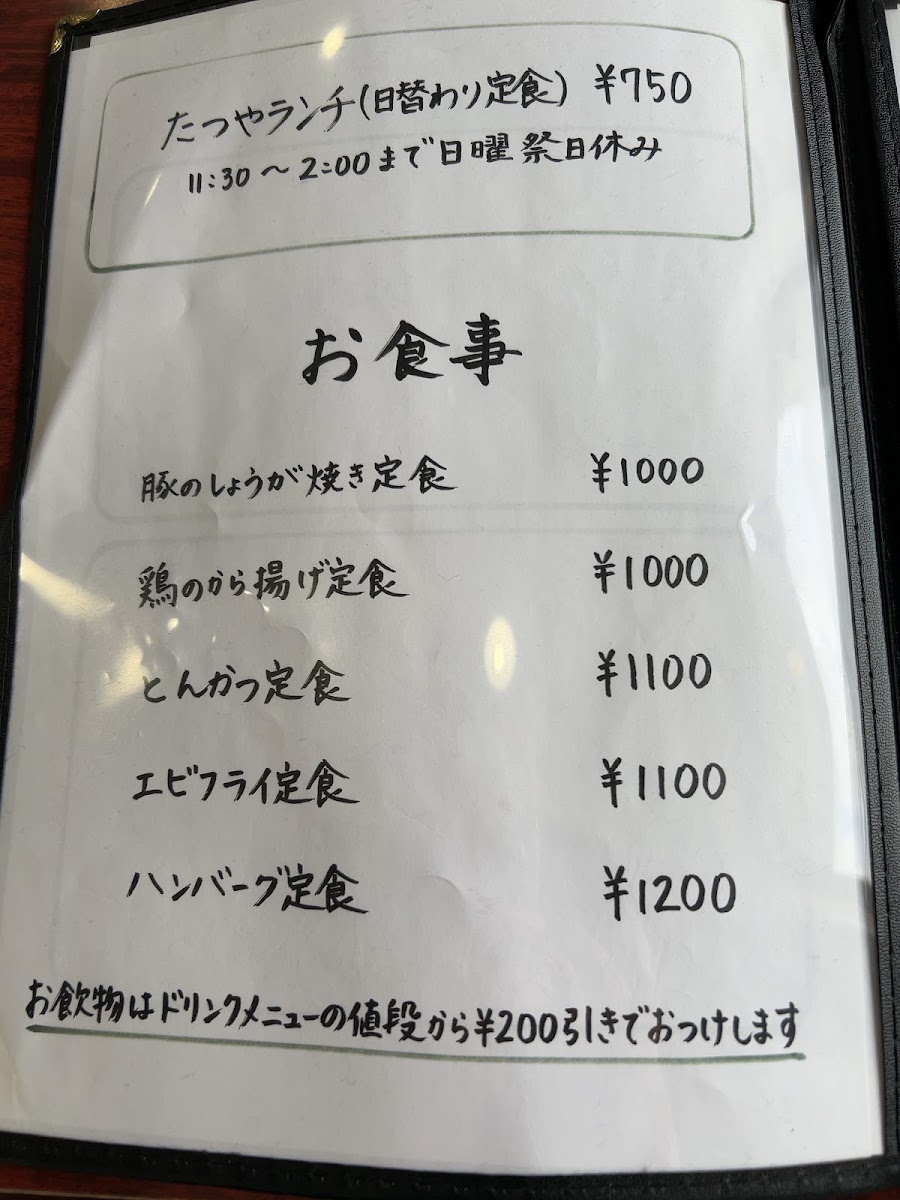 たつやランチ(日替わり定食) ¥750
11:30〜2:00まで日曜祭日休み
お食事
豚のしょうが焼き定食 ¥1000
鶏のから揚げ定食 ¥1000
とんかつ定食 ¥1100
エビフライ定食 ¥1100
ハンバーグ定食 ¥1200
お飲物はドリンクメニューの値段から¥200引きでおつけします